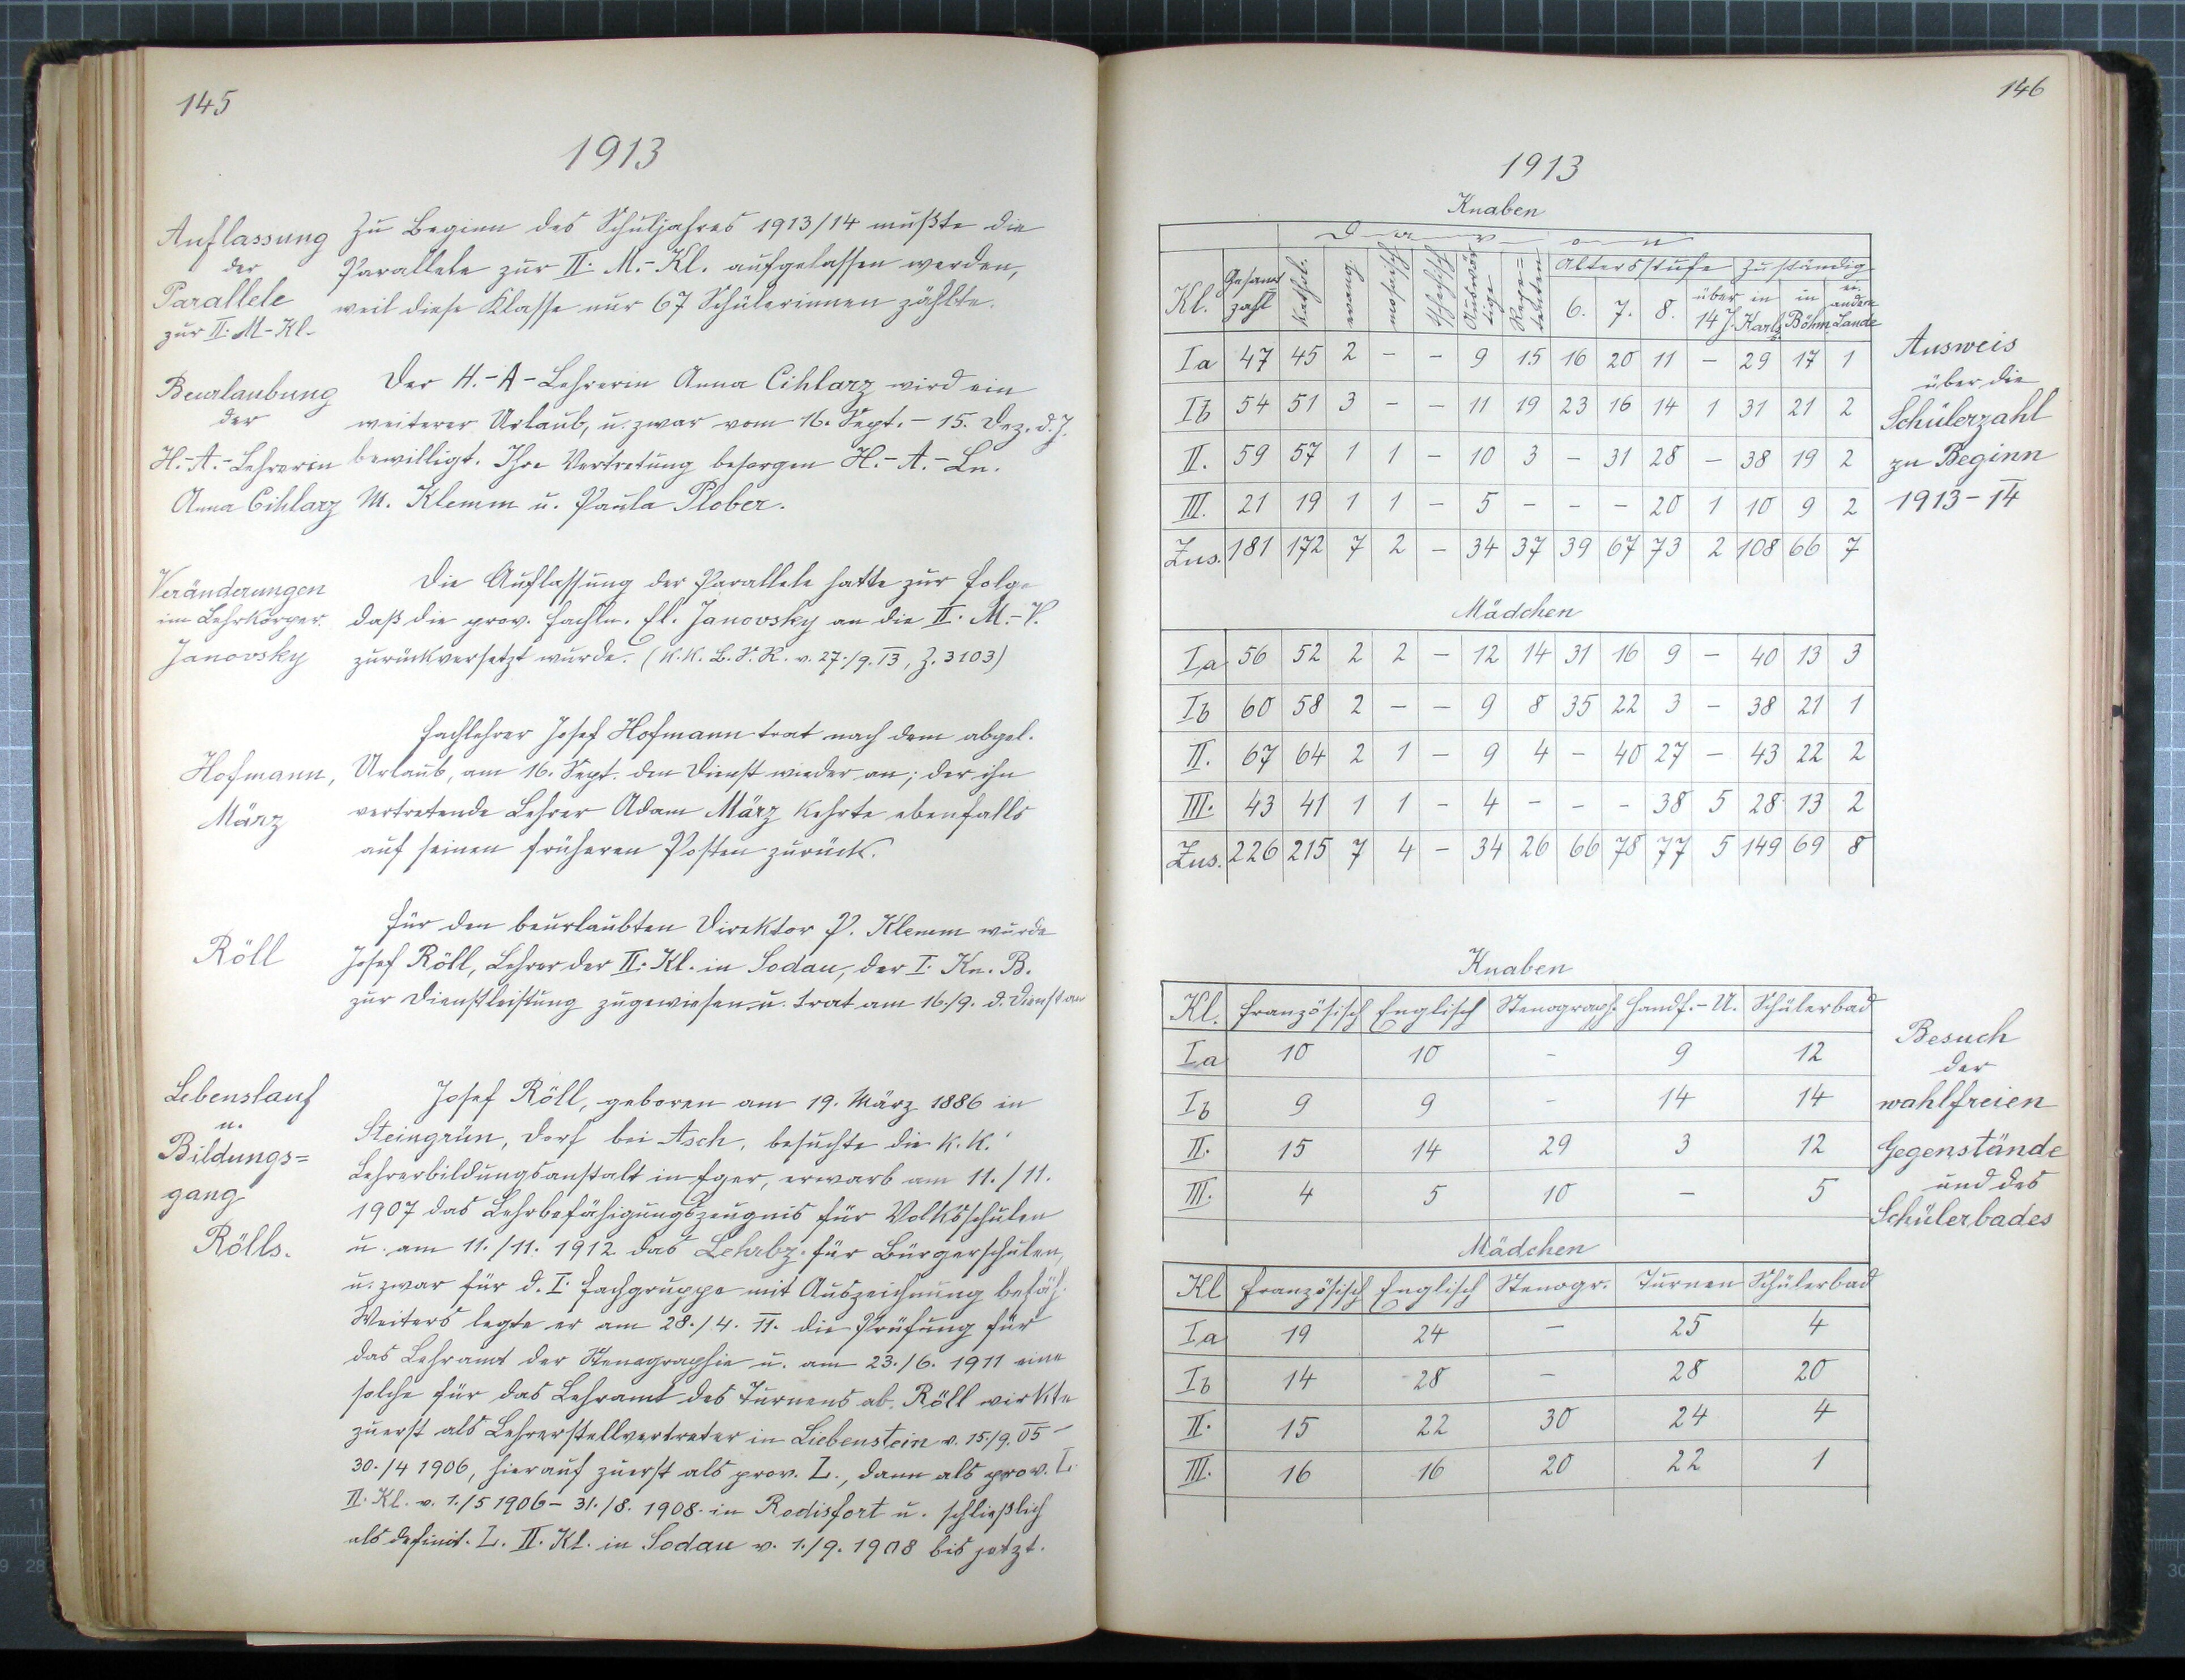 145
1913
Auflassung
der
Parallele
zur II. M.-Kl.
Zu Beginn des Schuljahres 1913/14 mußte die
Parallele zur II. M.-Kl. aufgelassen werden,
weil diese Klasse nur 67 Schülerinnen zählte.
Beurlaubung
der
H.-A.-Lehrerin
Anna Cihlarz
Der H.-A-Lehrerin Anna Cihlarz wird ein
weiterer Urlaub, u. zwar vom 16. Sept. - 15. Dez. d. J.
bewilligt. Ihre Vertretung besorgen H.-A.-Ln.
M. Klemm u. Paula Plober.
Veränderungen
im Lehrkörper.
Janovsky
Die Auflassung der Parallele hatte zur Folge
daß die prov. Fachln. El. Janovsky an die II. M.-V.
zurückversetzt wurde. (K.K. B.S.R. v. 27./9. 13, Z. 3103)
Hofmann,
März
Fachlehrer Josef Hofmann trat nach dem abgel.
Urlaub, am 16. Sept. den Dienst wieder an; der ihn
vertretende Lehrer Adam März kehrte ebenfalls
auf seinen früheren Posten zurück.
Röll
Für den beurlaubten Direktor P. Klemm wurde
Josef Röll, Lehrer der II. Kl. in Sodau, der I. Kn. B.
zur Dienstleistung zugewiesen u. trat am 16./9. d. Dienst an
Lebenslauf
u.
Bildungs=
gang
Rölls.
Josef Röll, geboren am 19. März 1886 in
Steingrün, Dorf bei Asch, besuchte die k. k.
Lehrerbildungsanstalt in Eger, erwarb am 11./11.
1907 das Lehrbefähigungszeugnis für Volksschulen
u. am 11./11. 1912 das Lehrbz. für Bürgerschulen,
u. zwar für d. I. Fachgruppe mit Auszeichnung befäh.
Weiters legte er am 28./4. 11. die Prüfung für
das Lehramt der Stenographie u. am 23./6. 1911 eine
solche für das Lehramt des Turnens ab. Röll wirkte
zuerst als Lehrerstellvertreter in Liebenstein v. 15./9. 05 -
30./4 1906, hierauf zuerst als prov. L., dann als prov. L.
II. Kl. v. 1./5 1906 - 31./8. 1908. in Rodisfort u. schließlich
als definit. L. II. Kl. in Sodau v. 1./9. 1908 bis jetzt.
146
1913
Knaben
Davon
Kl. Gesamt zahl kathol. evang. mosaisch tschechisch Auswär tige Repe= tenten Altersstufe Zuständig
6. 7. 8. über 14 J. in Karlsb. in Böhm. in andere Lande
Ia 47 45 2 - - 9 15 16 20 11 - 29 17 1
Ib 54 51 3 - - 11 19 23 16 14 1 31 21 2
II. 59 57 1 1 - 10 3 - 31 28 - 38 19 2
III. 21 19 1 1 - 5 - - - 20 1 10 9 2
Zus. 181 172 7 2 - 34 37 39 67 73 2 108 66 7
Mädchen
Ia 56 52 2 2 - 12 14 31 16 9 - 40 13 3
Ib 60 58 2 - - 9 8 35 22 3 - 38 21 1
II. 67 64 2 1 - 9 4 - 40 27 - 43 22 2
III. 43 41 1 1 - 4 - - - 38 5 28 13 2
Zus. 226 215 7 4 - 34 26 66 78 77 5 149 69 8
Ausweis
über die
Schülerzahl
zu Beginn
1913-14
Knaben
Kl. Französisch Englisch Stenograph. Handf.-U. Schülerbad
Ia 10 10 - 9 12
Ib 9 9 - 14 14
II. 15 14 29 3 12
III. 4 5 10 - 5
Mädchen
Kl Französisch Englisch Stenogr. Turnen Schülerbad
Ia 19 24 - 25 4
Ib 14 28 - 28 20
II. 15 22 30 24 4
III. 16 16 20 22 1
Besuch
der
wahlfreien
Gegenstände
und des
Schülerbades